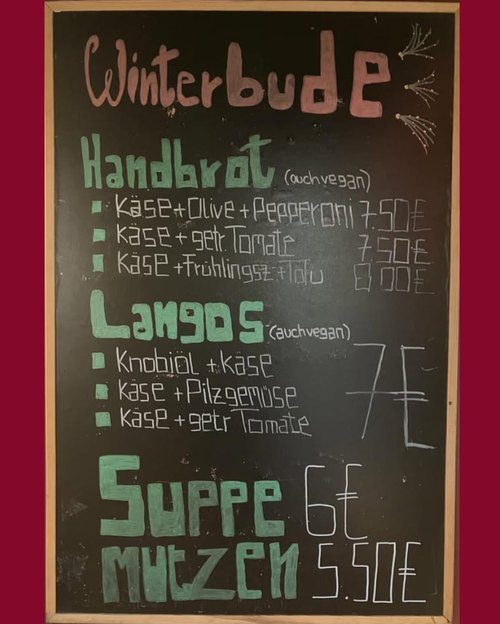 Winterbude
Handbrot (auch vegan)
Käse + Olive + Pepperoni 7.50€
Käse + getr. Tomate 7.50€
Käse + Frühlingsz. + Tofu 8.00€
Langos (auch vegan)
Knobiöl + Käse
Käse + Pilzgemüse
Käse + getr Tomate
7€
Suppe 6€
mutzen 5.50€